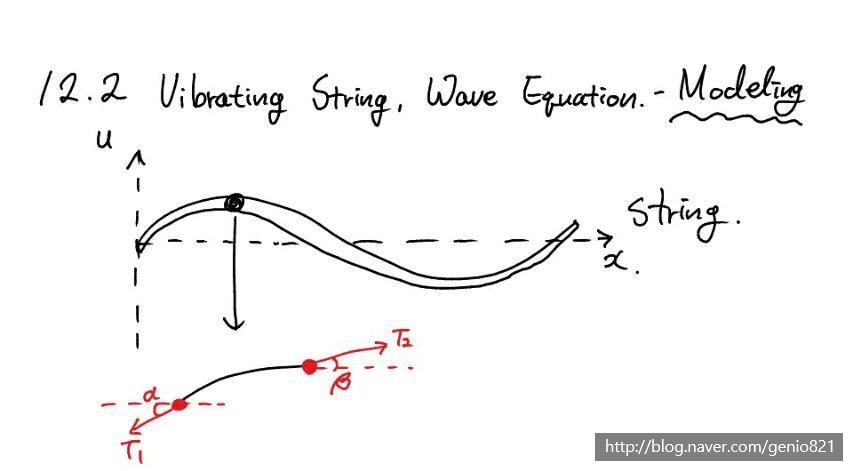 12.2 Vibrating String, Wave Equation. - Modeling
u
String.
x.
T2
β
α
T1
http://blog.naver.com/genio821